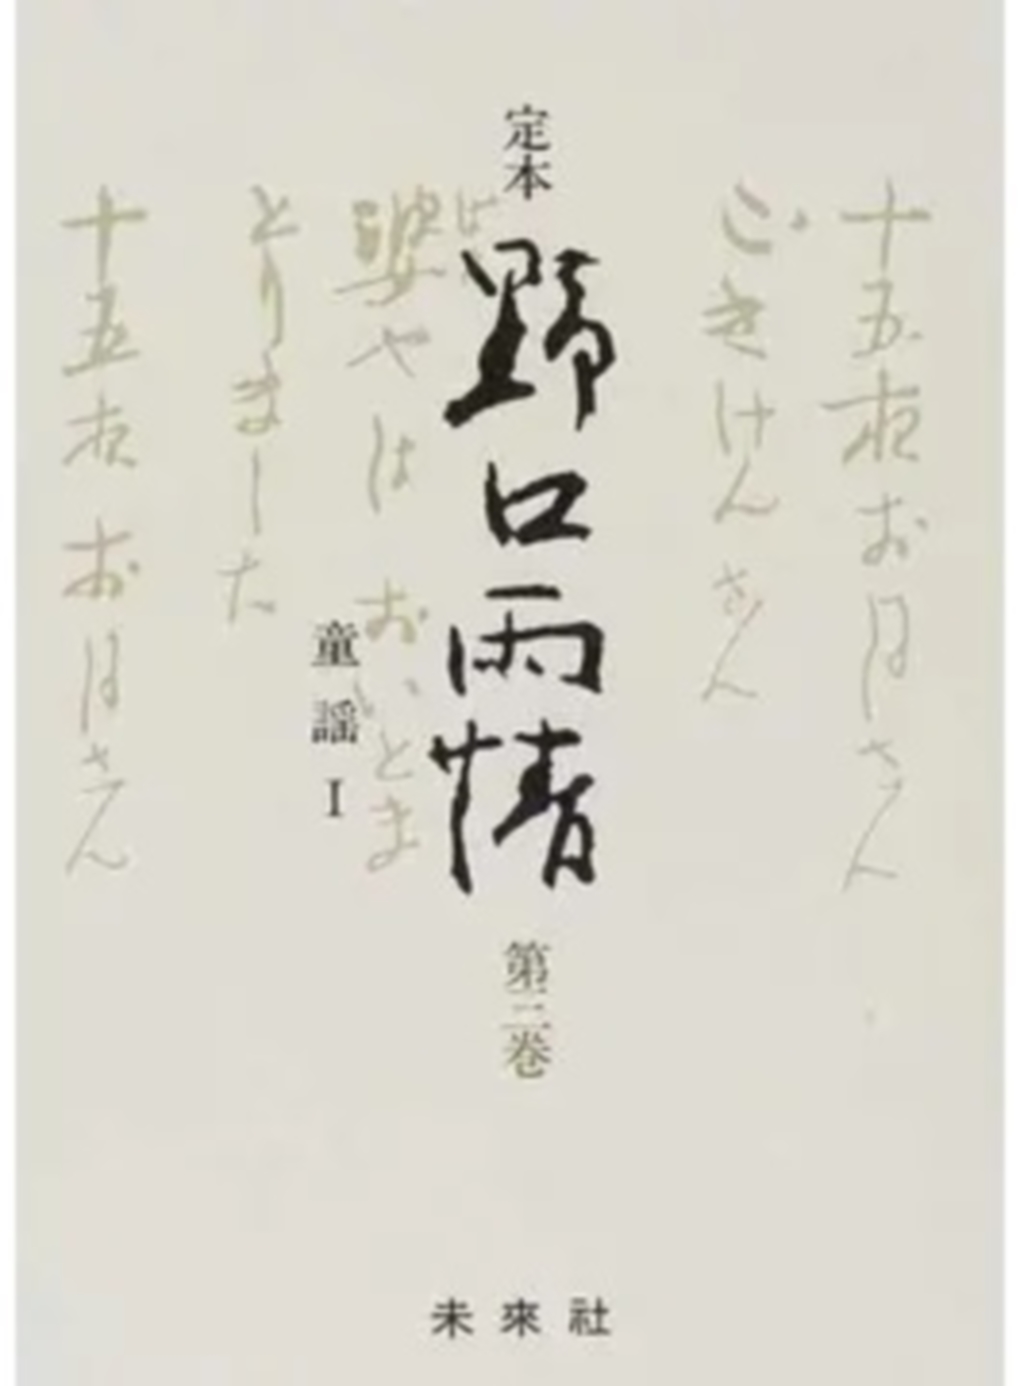 十五夜お月さん
ごきけんさん
定本
野口雨情
第三巻
婆やは おいとま
童謡 I
とりました
十五夜お月さん
未來社